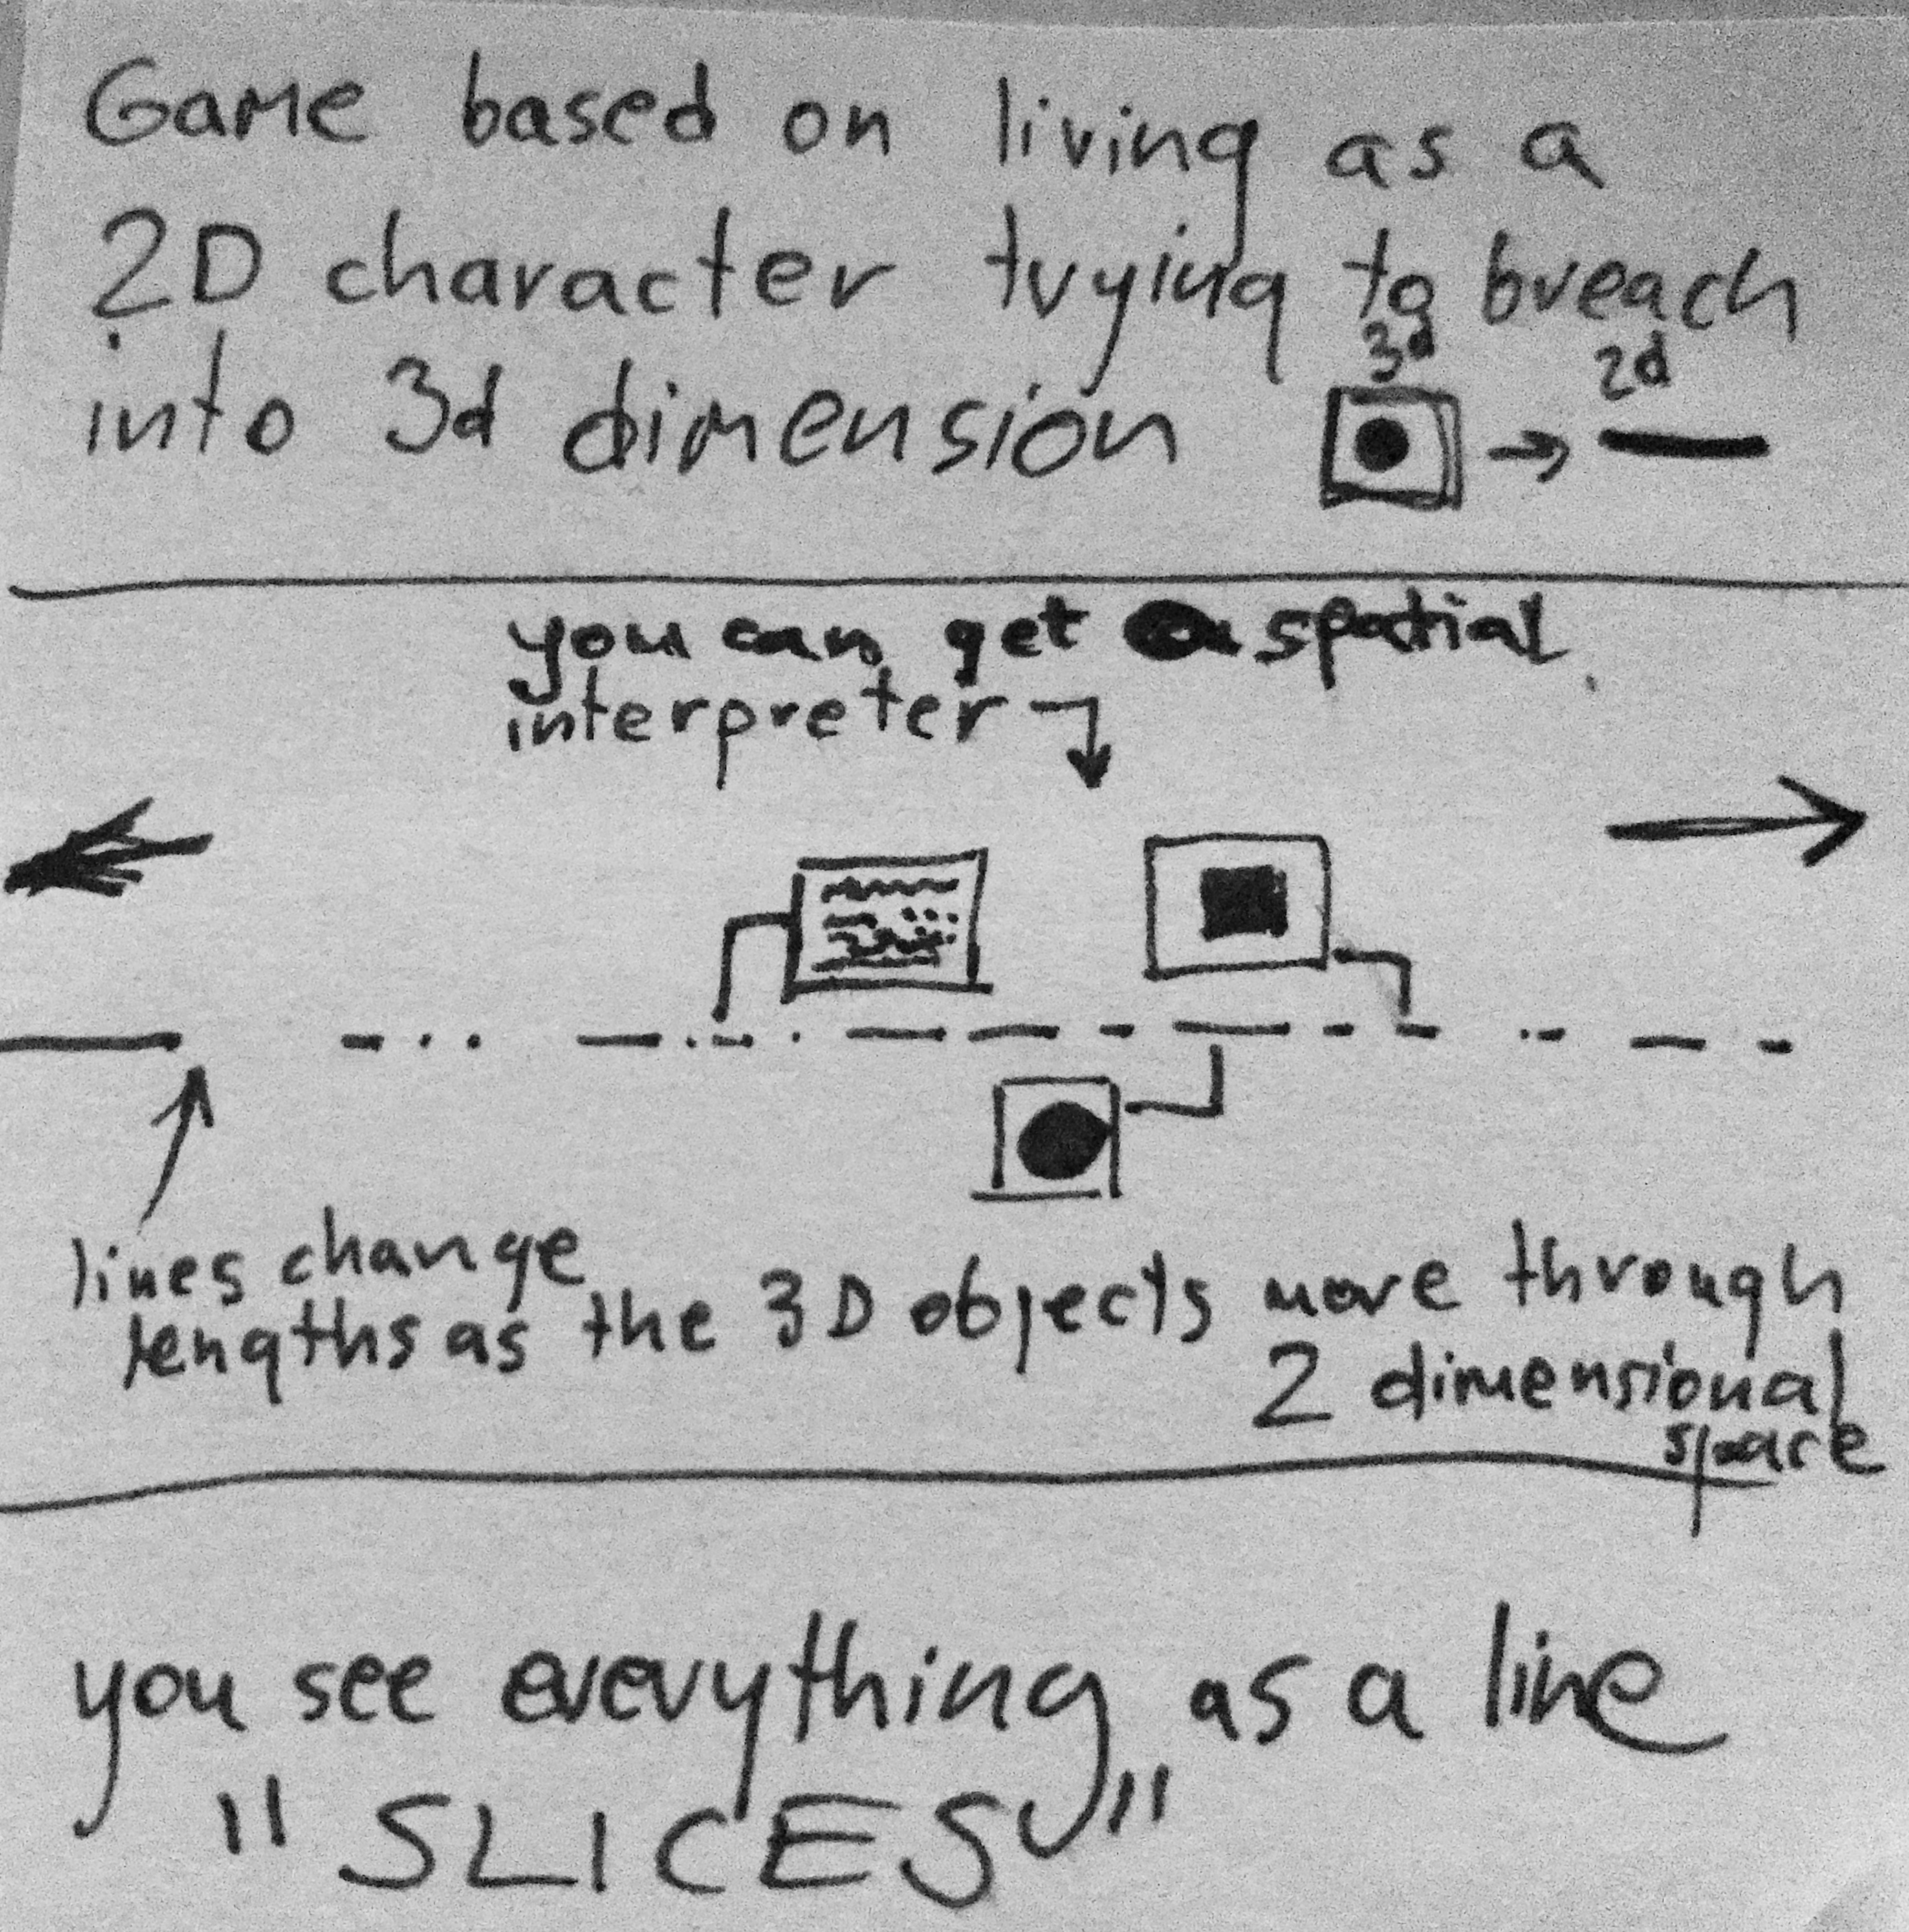 Game based on living as a
2D character trying to breach
into 3d dimension
3d
2d
you can get a spatial
interpreter
lines change
lengths as the 3D objects move through
2 dimensional
space
you see everything as a line
"SLICES"